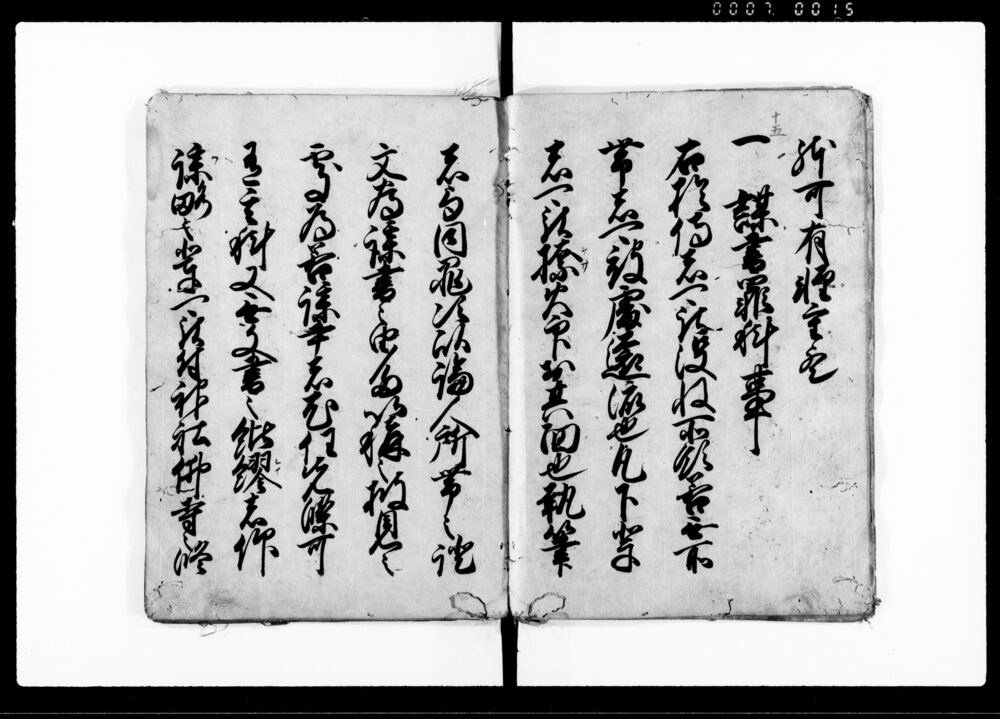 0007 0015
十五
然可有軽重矣
一 謀書罪科事
右於侍者可被没収所領若無所
帯者可被處遠流也凡下輩
者可被捺火印於其面也執筆
者与同罪次以論人所帯之證
文為謀書之由多以称之披見之
處為若謀書者尤任先條可
有其科又無文書之紕繆者仰
謀略之輩可被付神社佛寺修